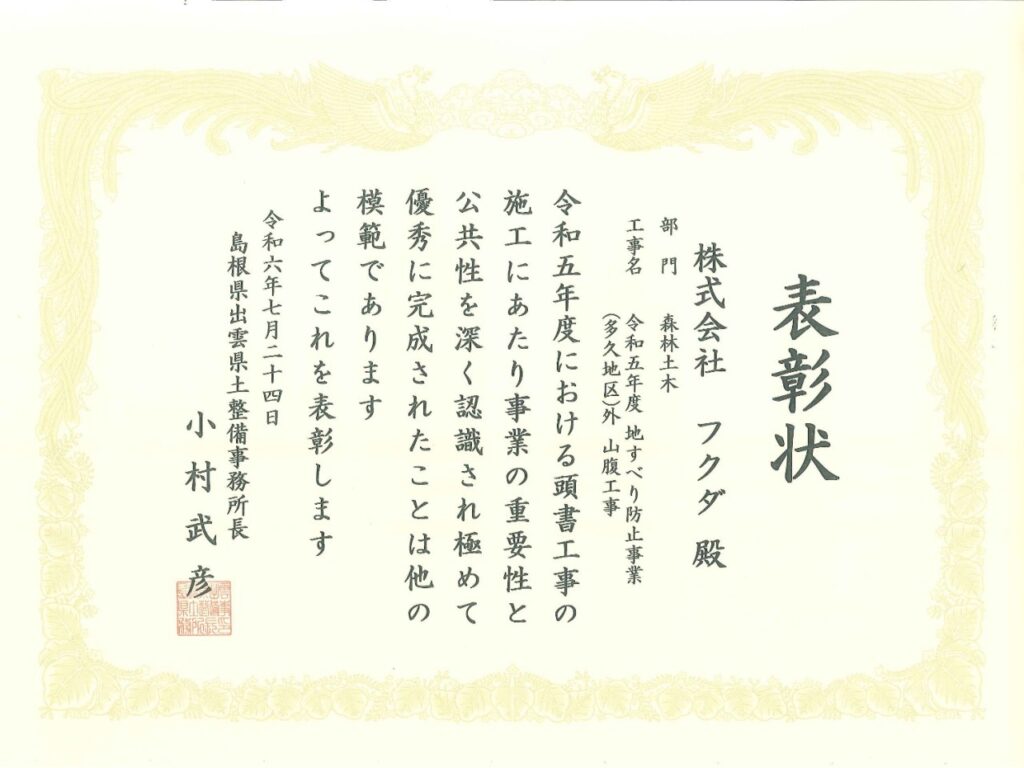 表彰状
株式会社 フクダ 殿
部門 森林土木
工事名 令和五年度 地すべり防止事業
(多久地区)外 山腹工事
令和五年度における頭書工事の
施工にあたり事業の重要性と
公共性を深く認識され極めて
優秀に完成されたことは他の
模範であります
よってこれを表彰します
令和六年七月二十四日
島根県出雲県土整備事務所長
小村武彦